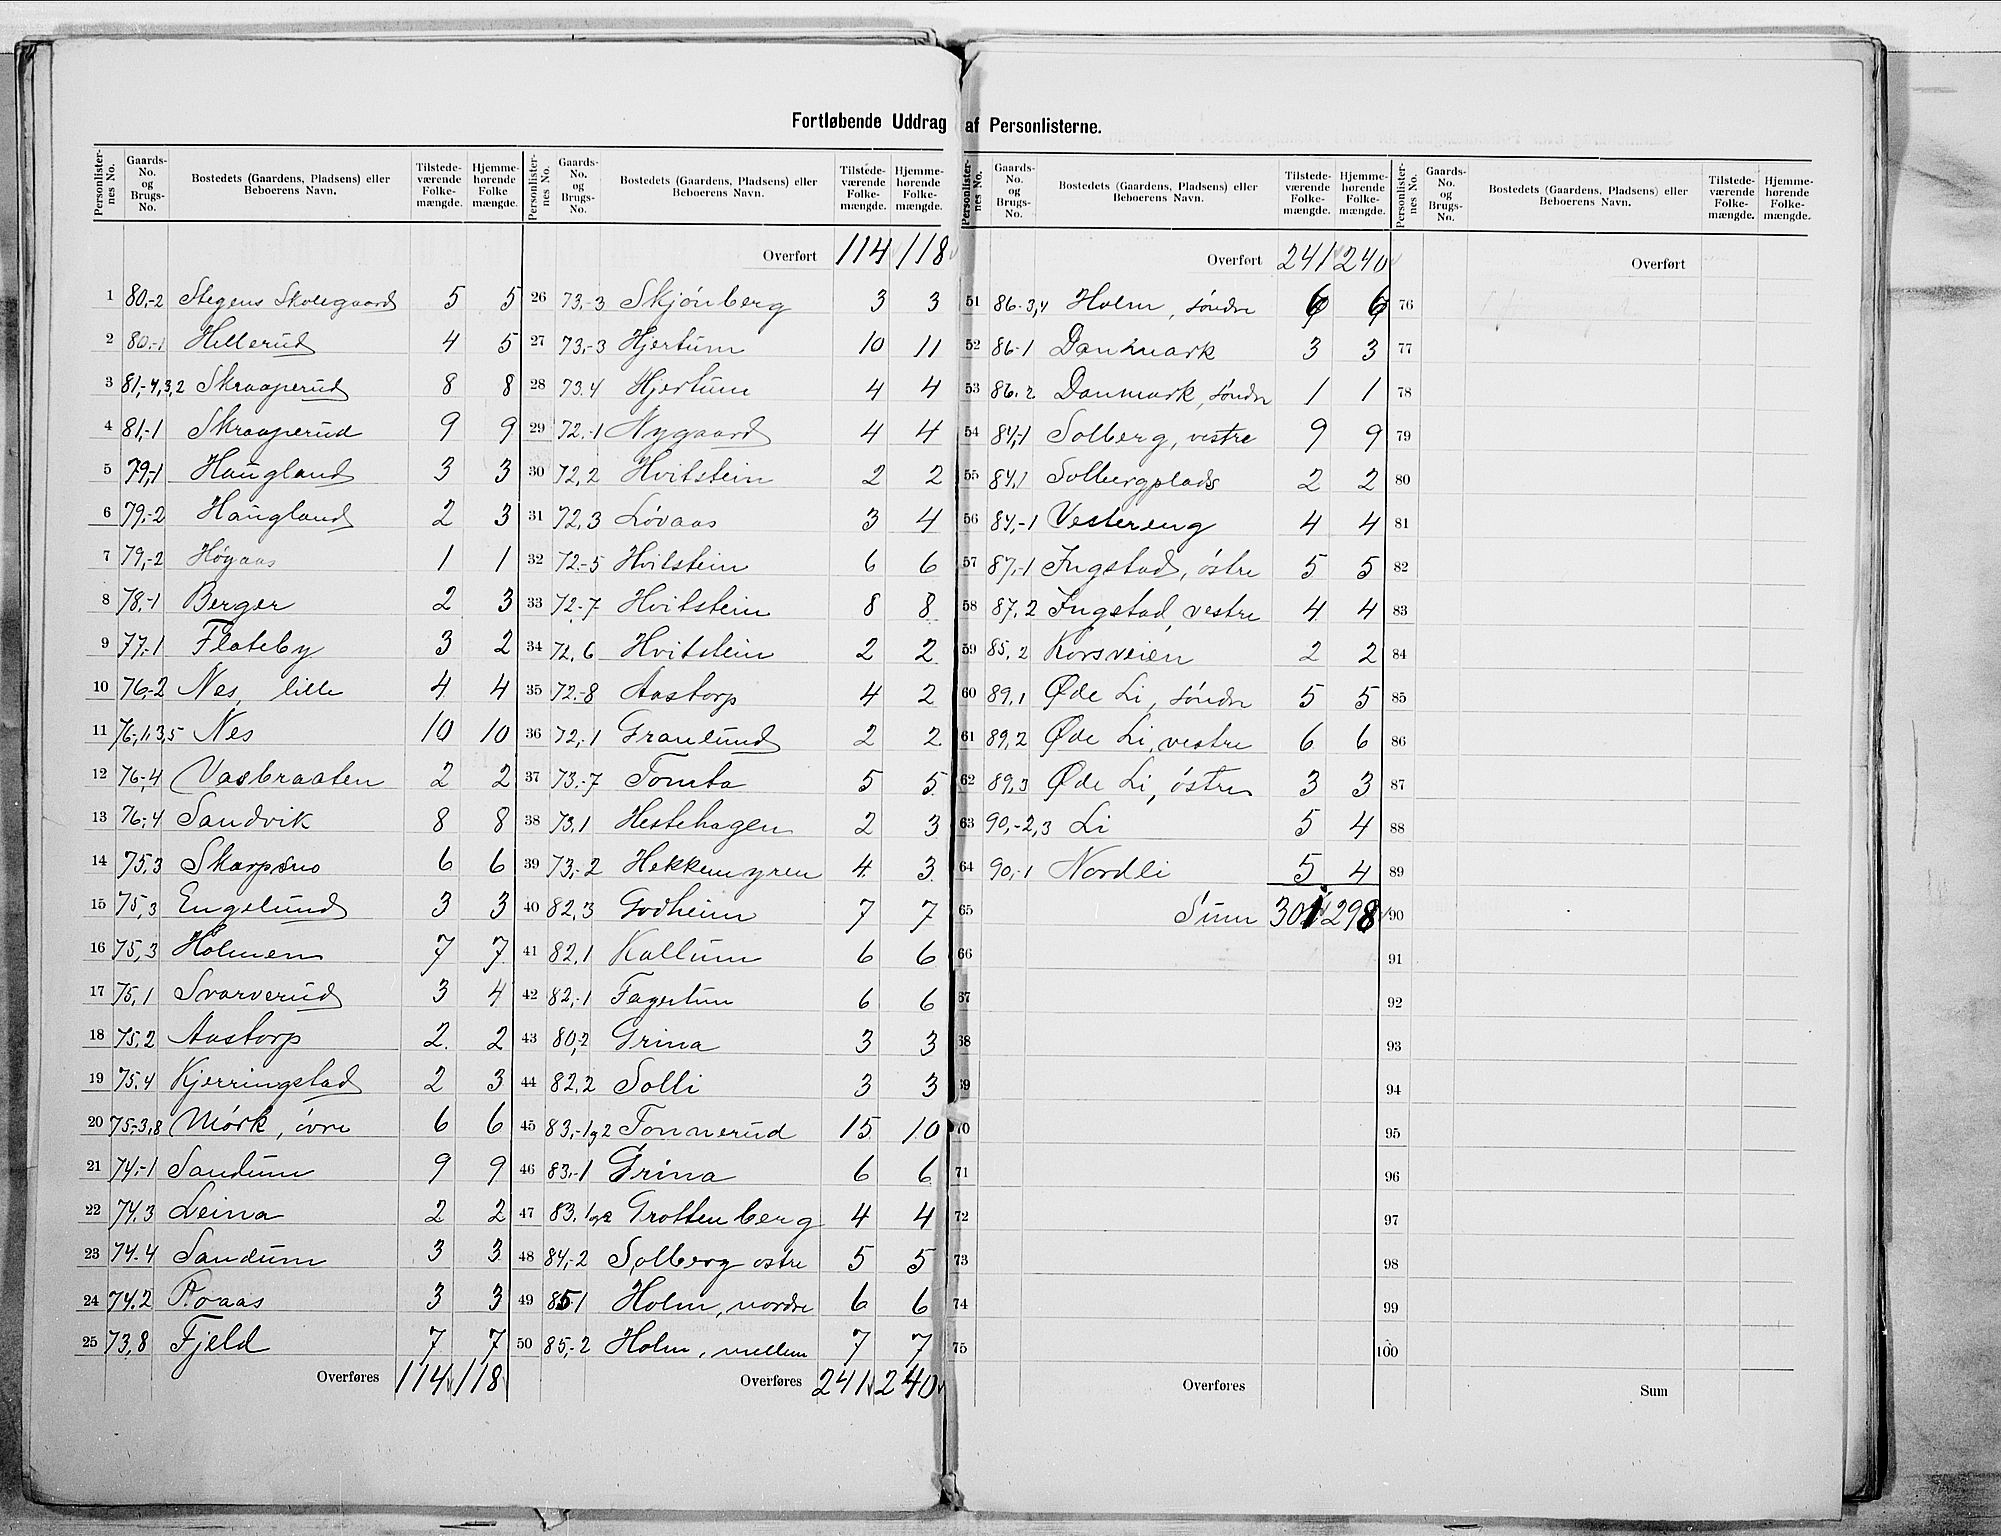 Fortløbende Uddrag af Personlisternе.
Personlister-nes No. | Gaards-No. og Brugs-No. | Bostedets (Gaardens, Pladsens) eller Beboerens Navn. | Tilstede-værende Folke-mængde. | Hjemme-hørende Folke mængde.
1 80,-2 Stegens Skolegaard 5 5
2 80,-1 Hellerud 4 5
3 81,-4,3,2 Skraaperud 8 8
4 81,-1 Skraaperud 9 9
5 79,-1 Haugland 3 3
6 79,-2 Haugland 2 3
7 79,-2 Høgaas 1 1
8 78,-1 Berger 2 3
9 77,-1 Flateby 3 2
10 76,-2 Nes, lille 4 4
11 76,-1,3,5 Nes 10 10
12 76,-4 Vasbraaten 2 2
13 76,-4 Sandvik 8 8
14 75,3 Skarpsno 6 6
15 75,3 Engelund 3 3
16 75,3 Holmen 7 7
17 75,1 Svarverud 3 4
18 75,2 Aastorp 2 2
19 75,4 Kjerringstad 2 3
20 75,-3,8 Mörk, övre 6 6
21 74,-1 Sandum 9 9
22 74.3 Leina 2 2
23 74.4 Sandum 3 3
24 74.2 Roaas 3 3
25 73,8 Fjeld 7 7
Overføres 114 118
Personlister-nes No. | Gaards-No. og Brugs-No. | Bostedets (Gaardens, Pladsens) eller Beboerens Navn. | Tilstede-værende Folke-mængde. | Hjemme-hørende Folke-mængde.
Overført 114 118
26 73,-3 Skjönberg 3 3
27 73,-3 Hjertum 10 11
28 73.4 Hjertum 4 4
29 72.-1 Nygaard 4 4
30 72,2 Hvitstein 2 2
31 72,3 Lövaas 3 4
32 72.-5 Hvitstein 6 6
33 72,-7 Hvitstein 8 8
34 72,6 Hvitstein 2 2
35 72,-8 Aastorp 4 2
36 72,-1 Granlund 2 2
37 73.-7 Tomta 5 5
38 73,1 Hestehagen 2 3
39 73,-2 Hekkemyren 4 3
40 82,3 Godheim 7 7
41 82,1 Kallum 6 6
42 82,-1 Fagertun 6 6
43 80,-2 Grina 3 3
44 82,2 Solli 3 3
45 83,-1g2 Tonnerud 15 10
46 83,-1 Grina 6 6
47 83,1g2 Grottenberg 4 4
48 84,-2 Solberg östre 5 5
49 85-1 Holm, nordre 6 6
50 85,-2 Holm, mellem 7 7
Overføres 241 240
Personlister-nes No. | Gaards-No. og Brugs-No. | Bostedets (Gaardens, Pladsens) eller Beboerens Navn. | Tilstede-værende Folke-mængde. | Hjemme-hørende Folke-mængde.
Overført 241 240
51 86.-3,4 Holm, söndre 6 6
52 86-1 Danmark 3 3
53 86.2 Danmark, söndre 1 1
54 84,-1 Solberg, vestre 9 9
55 84,1 Solbergplads 2 2
56 84,-1 Vestereng 4 4
57 87,-1 Ingstad, östre 5 5
58 87.2 Ingstad, vestre 4 4
59 85,2 Korsveien 2 2
60 89,1 Øde Li, söndre 5 5
61 89,2 Øde Li, vestre 6 6
62 89,3 Øde Li, östre 3 3
63 90,-2,3 Li 5 4
64 90,-1 Nordli 5 4
65 Sum 301 298
66
67
68
69
70
71
72
73
74
75
Overføres
Personlister-nes No. | Gaards-No. og Brugs-No. | Bostedets (Gaardens, Pladsens) eller Beboerens Navn. | Tilstede-værende Folke-mængde. | Hjemme-hørende Folke-mængde.
Overført
76
77
78
79
80
81
82
83
84
85
86
87
88
89
90
91
92
93
94
95
96
97
98
99
100
Sum